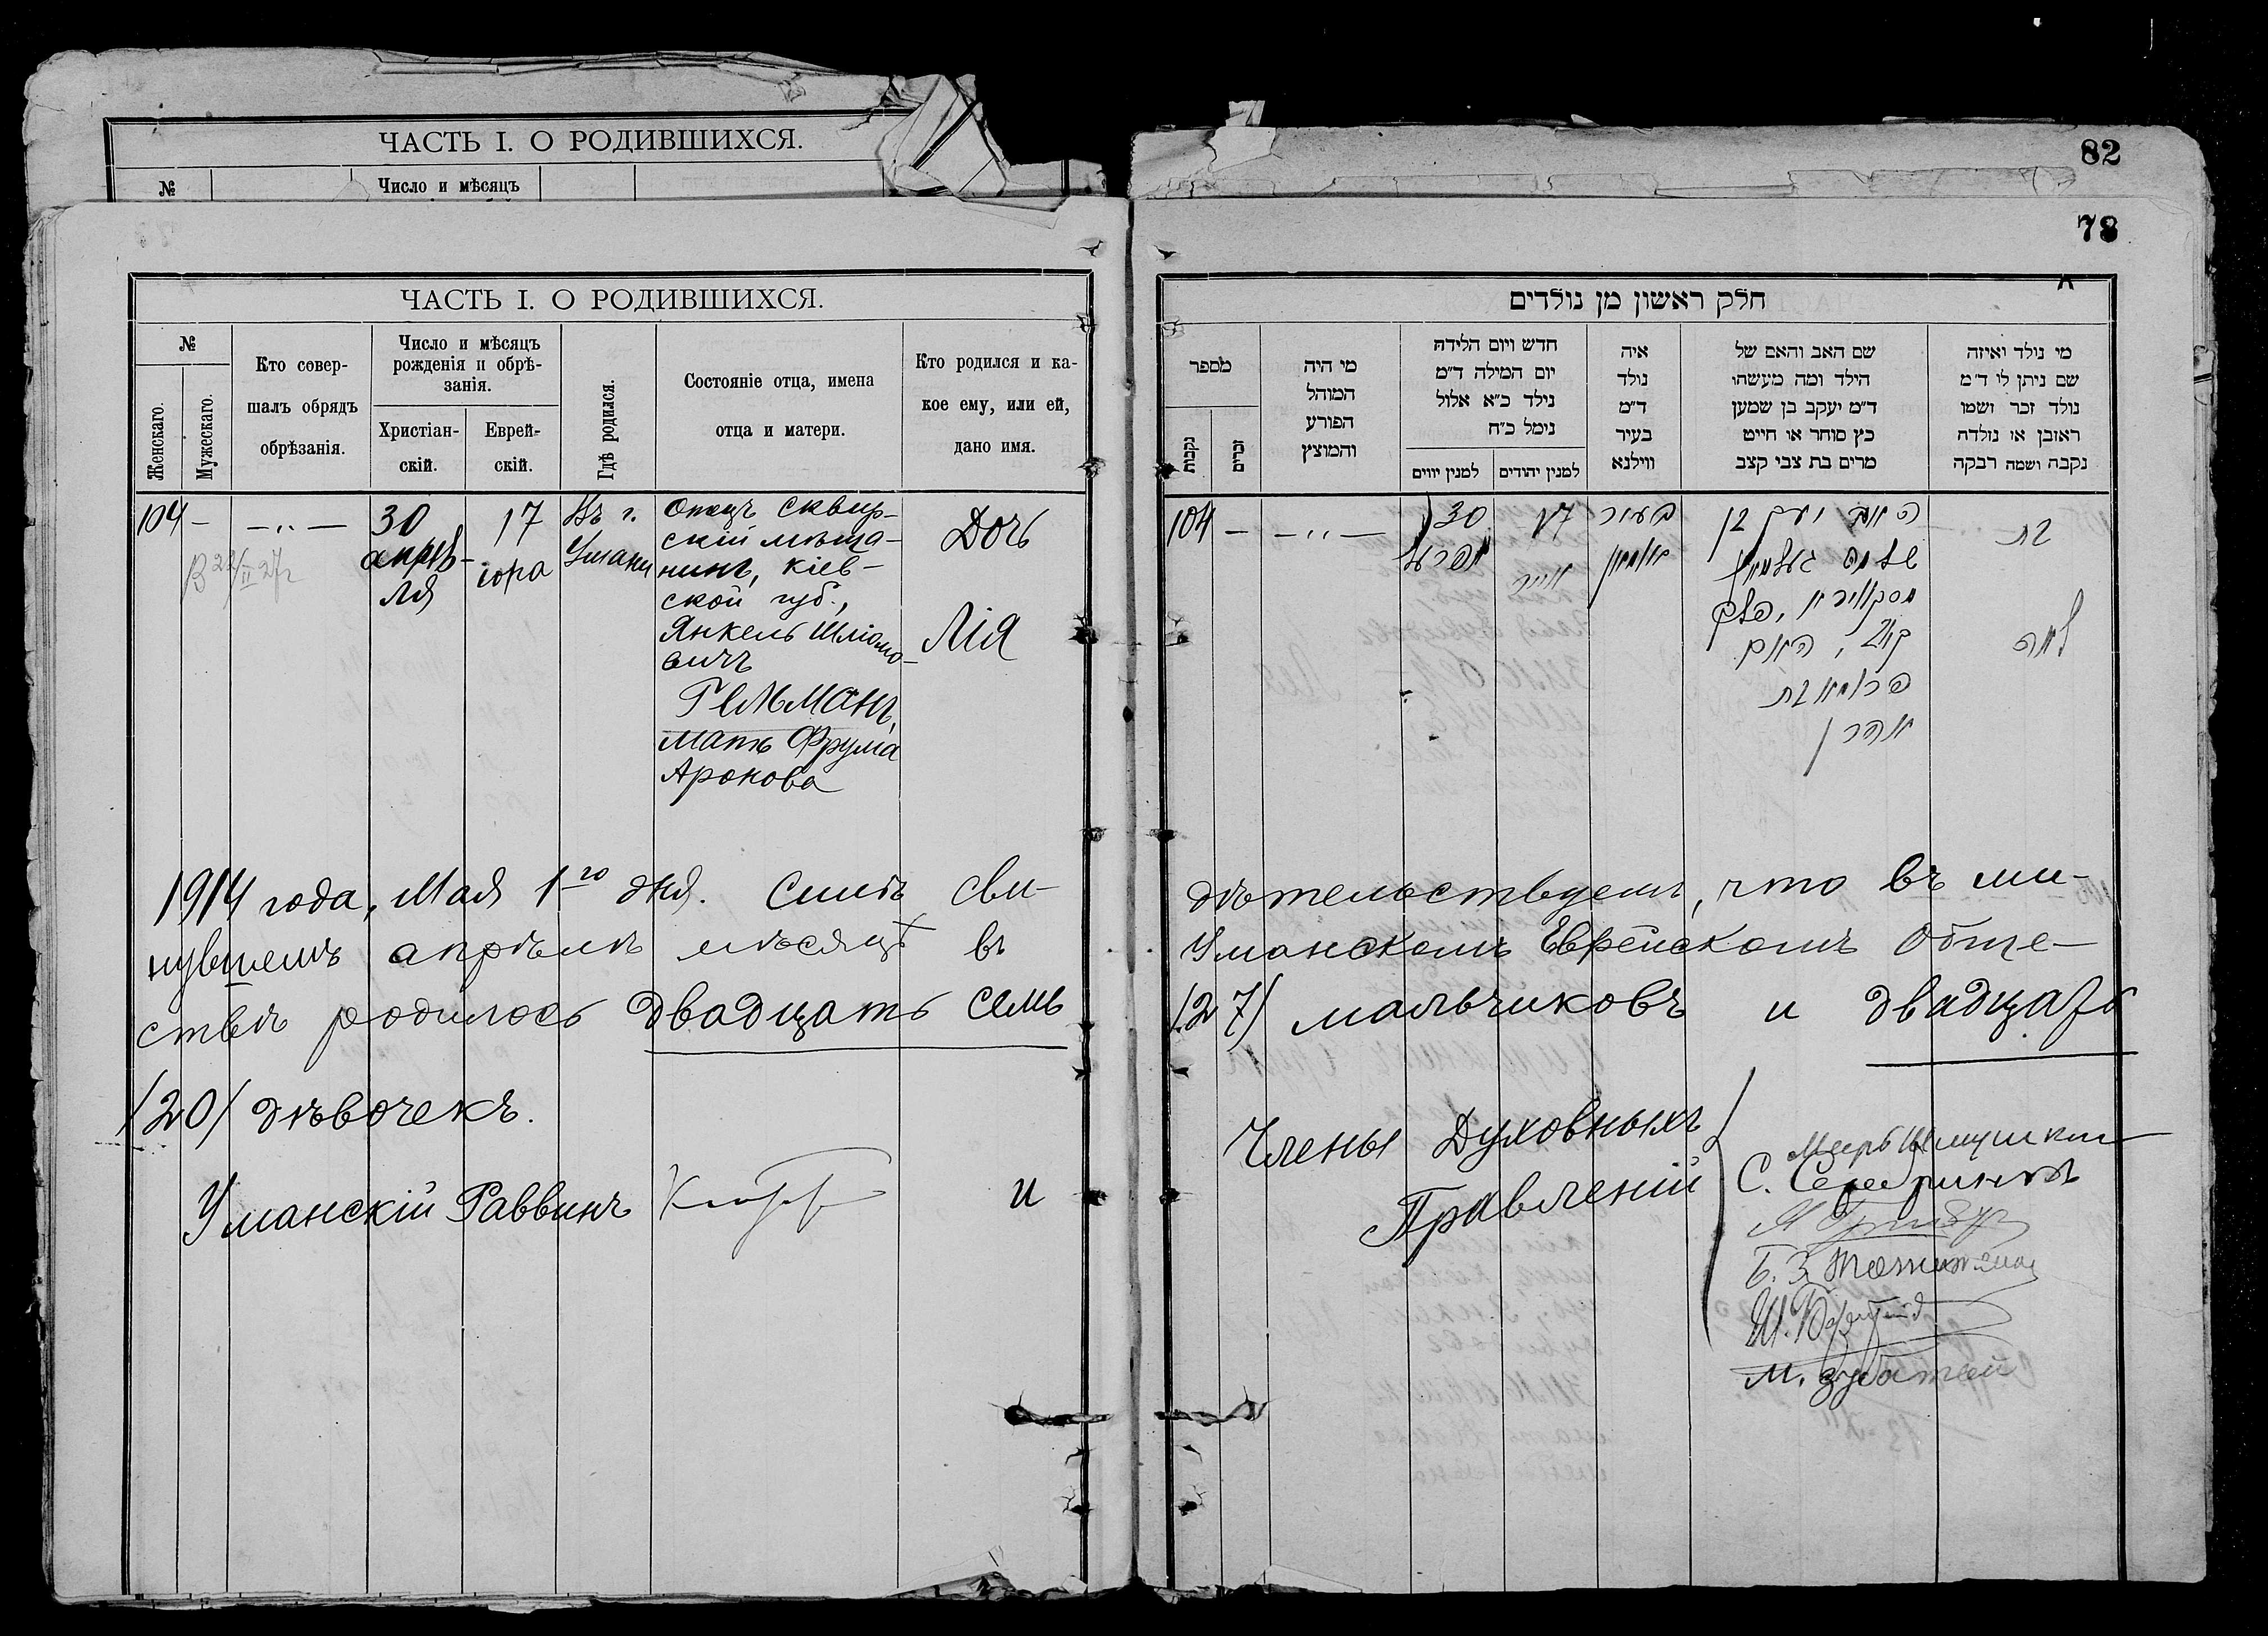 ЧАСТЬ I. О РОДИВШИХСЯ.
№
Число и мѣсяцъ
82
78
ЧАСТЬ I. О РОДИВШИХСЯ.
№
Женскаго.
Мужескаго.
Кто совер-
шалъ обрядъ
обрѣзанія.
Число и мѣсяцъ
рожденія и обрѣ-
занія.
Христіан-
скій.
Еврей-
скій.
Гдѣ родился.
Состояніе отца, имена
отца и матери.
Кто родился и ка-
кое ему, или ей,
дано имя.
104 -
- „ -
30
апрѣ-
ля
17
іора
Въ г.
Умани
Отецъ сквир-
скій мѣща-
нинъ, кіев-
ской губ.,
Янкель Шліомо-
вичъ
Гельманъ,
мать Фрума
Аронова
Дочь
Лія
חלק ראשון מן נולדים
מספר
נקבות
זכרים
מי היה
המוהל
הפורע
והמוצץ
חדש ויום הלידה
יום המילה ד״מ
נילד כ״א אלול
נימל כ״ח
למנין יווים
למנין יהודים
איה
נולד
ד״מ
בעיר
ווילנא
שם האב והאם של
הילד ומה מעשהו
ד״מ יעקב בן שמען
כץ סוחר או חייט
מרים בת צבי קצב
מי נולד ואיזה
שם ניתן לו ד״מ
נולד זכר ושמו
ראובן או נולדה
נקבה ושמה רבקה
104 -
- „ -
30
אפריל
17
אייר
בעיר
אומאן
האב יעקב בן
שלמה געלמאן
האם
פרומא בת
אהרן
בת
לאה
1914 года, Мая 1го дня. Симъ сви-
дѣтельствуемъ, что въ ми-
нувшемъ апрѣлѣ мѣсяцѣ въ
Уманскомъ Еврейскомъ Обще-
ствѣ родилось двадцать семь
(27) мальчиковъ и двадцать
(20) дѣвочекъ.
Уманскій Раввинъ
и
Члены Духовныхъ
Правленій
С.
М.
Б. З.
Ш.
М.